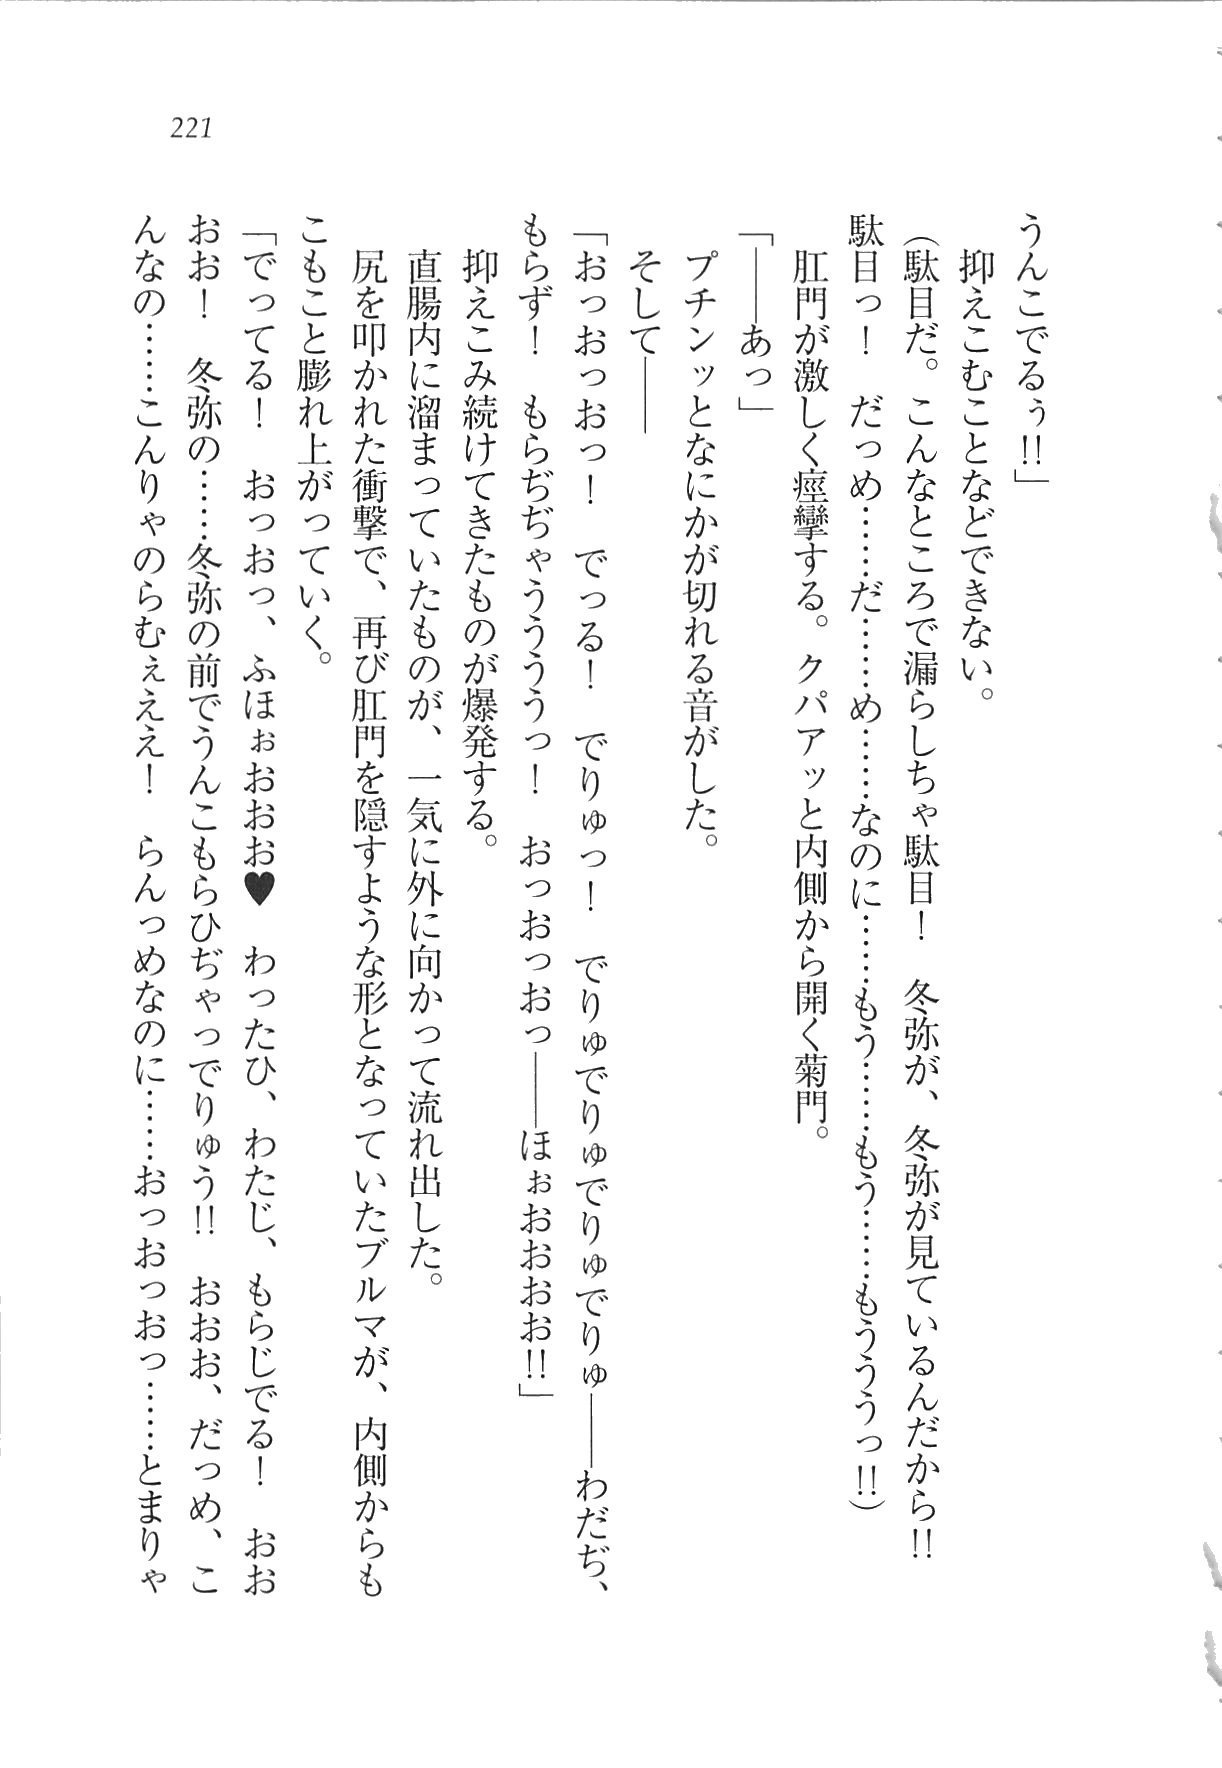 221
うんこでるぅ!!」
抑えこむことなどできない。
（駄目だ。こんなところで漏らしちゃ駄目！　冬弥が、冬弥が見ているんだから!!
駄目っ！　だっめ……だ……め……なのに……もう……もう……もうううっ!!）
肛門が激しく痙攣する。クパアッと内側から開く菊門。
「――あっ」
プチンッとなにかが切れる音がした。
そして――
「おっおっおっ！　でっる！　でりゅっ！　でりゅでりゅでりゅでりゅ――わだぢ、
もらず！　もらぢぢゃうううっ！　おっおっおっ――ほぉおおおお!!」
抑えこみ続けてきたものが爆発する。
直腸内に溜まっていたものが、一気に外に向かって流れ出した。
尻を叩かれた衝撃で、再び肛門を隠すような形となっていたブルマが、内側からも
こもこと膨れ上がっていく。
「でってる！　おっおっ、ふほぉおおお♥　わったひ、わたじ、もらじでる！　おお
おお！　冬弥の……冬弥の前でうんこもらひぢゃっでりゅう!!　おおお、だっめ、こ
んなの……こんりゃのらむぇええ！　らんっめなのに……おっおっおっ……とまりゃ